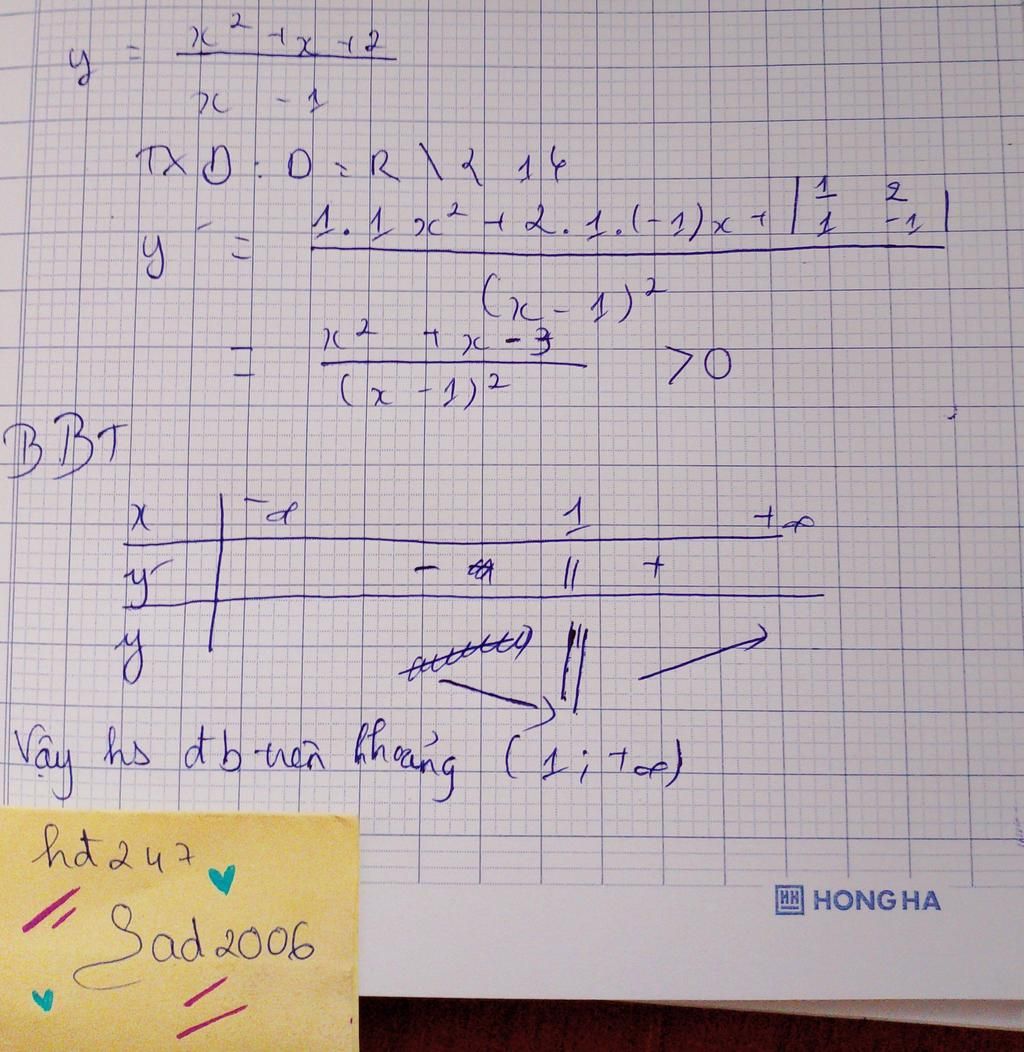 y = \frac{x² + x + 2}{x - 1}
TXD : D = R \ { 1 }
y' = \frac{1.1 x² + 2.1.(-1)x + \begin{vmatrix} 1 & 2 \\ 1 & -1 \end{vmatrix}}{(x - 1)²}
= \frac{x² + x - 3}{(x - 1)²} > 0
BBT
x | -∞ 1 +∞
y' | - || +
y | ↘ || ↗
Vậy hs đb trên khoảng (1 ; +∞)
hđ247
Sad2006
HH HONG HA